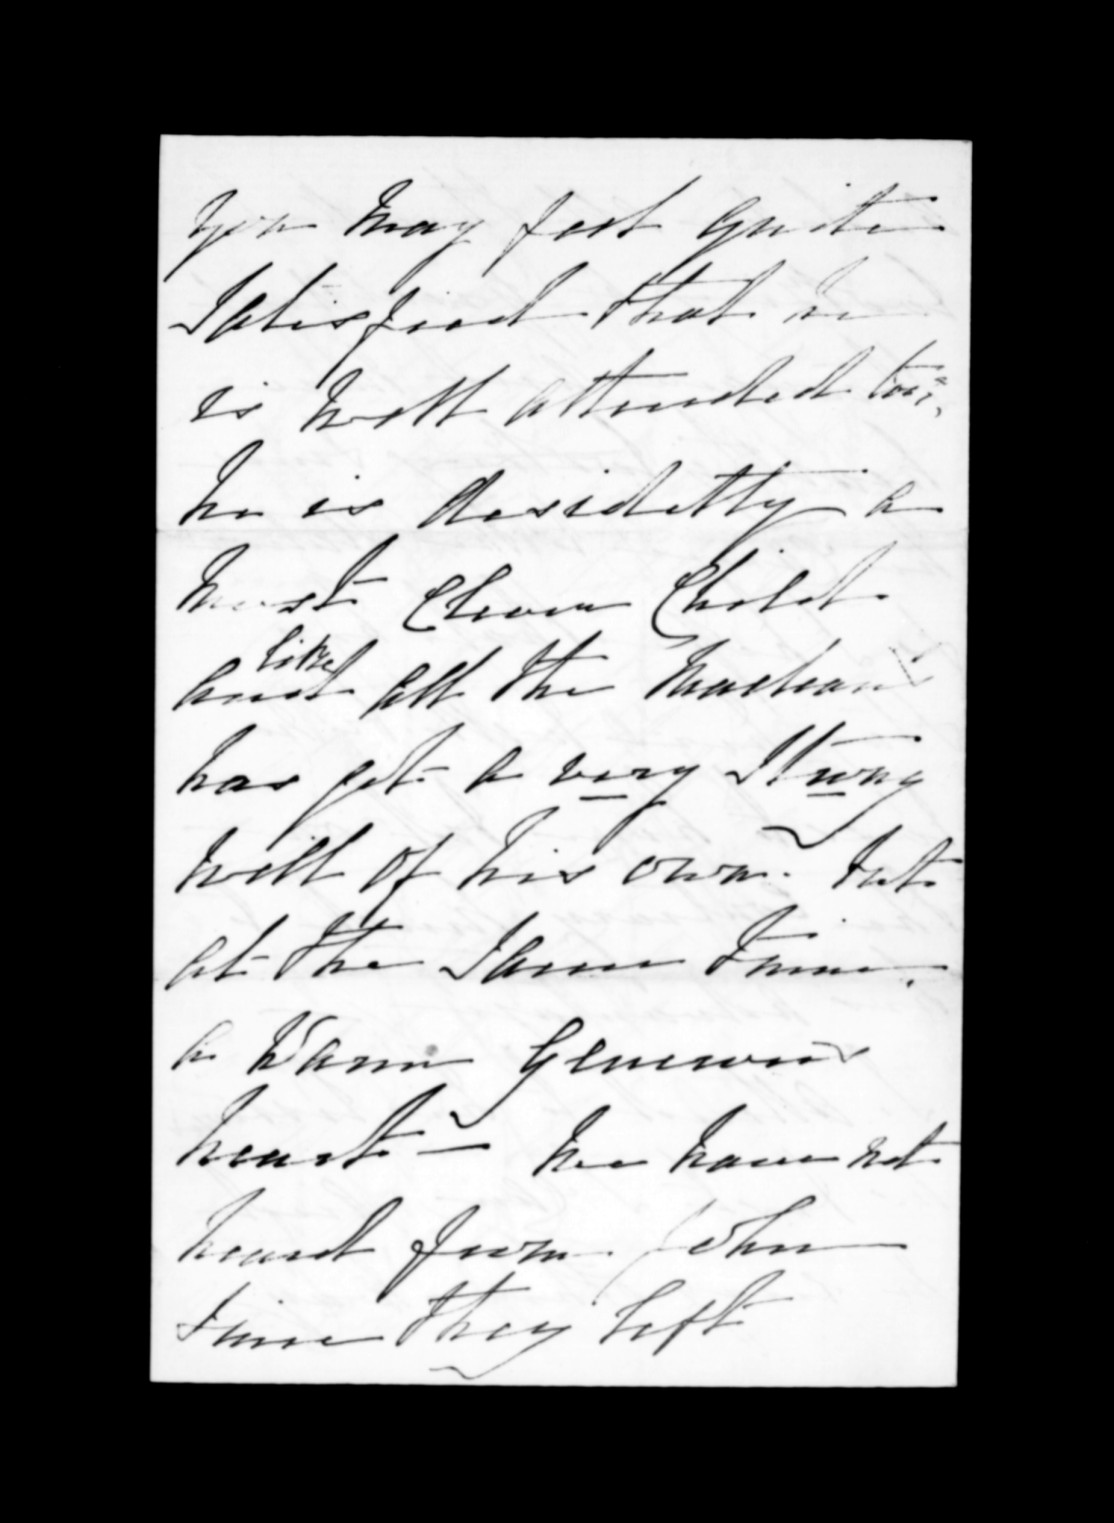 you may feel quite
Satisfied that he
is well attended too,
he is desidetly a
most Clever Child
and like all the Macleans
has got a very Strong
will of his own. but
at the Same time,
a Warm Generous
heart — We have not
heard from John
Since they left